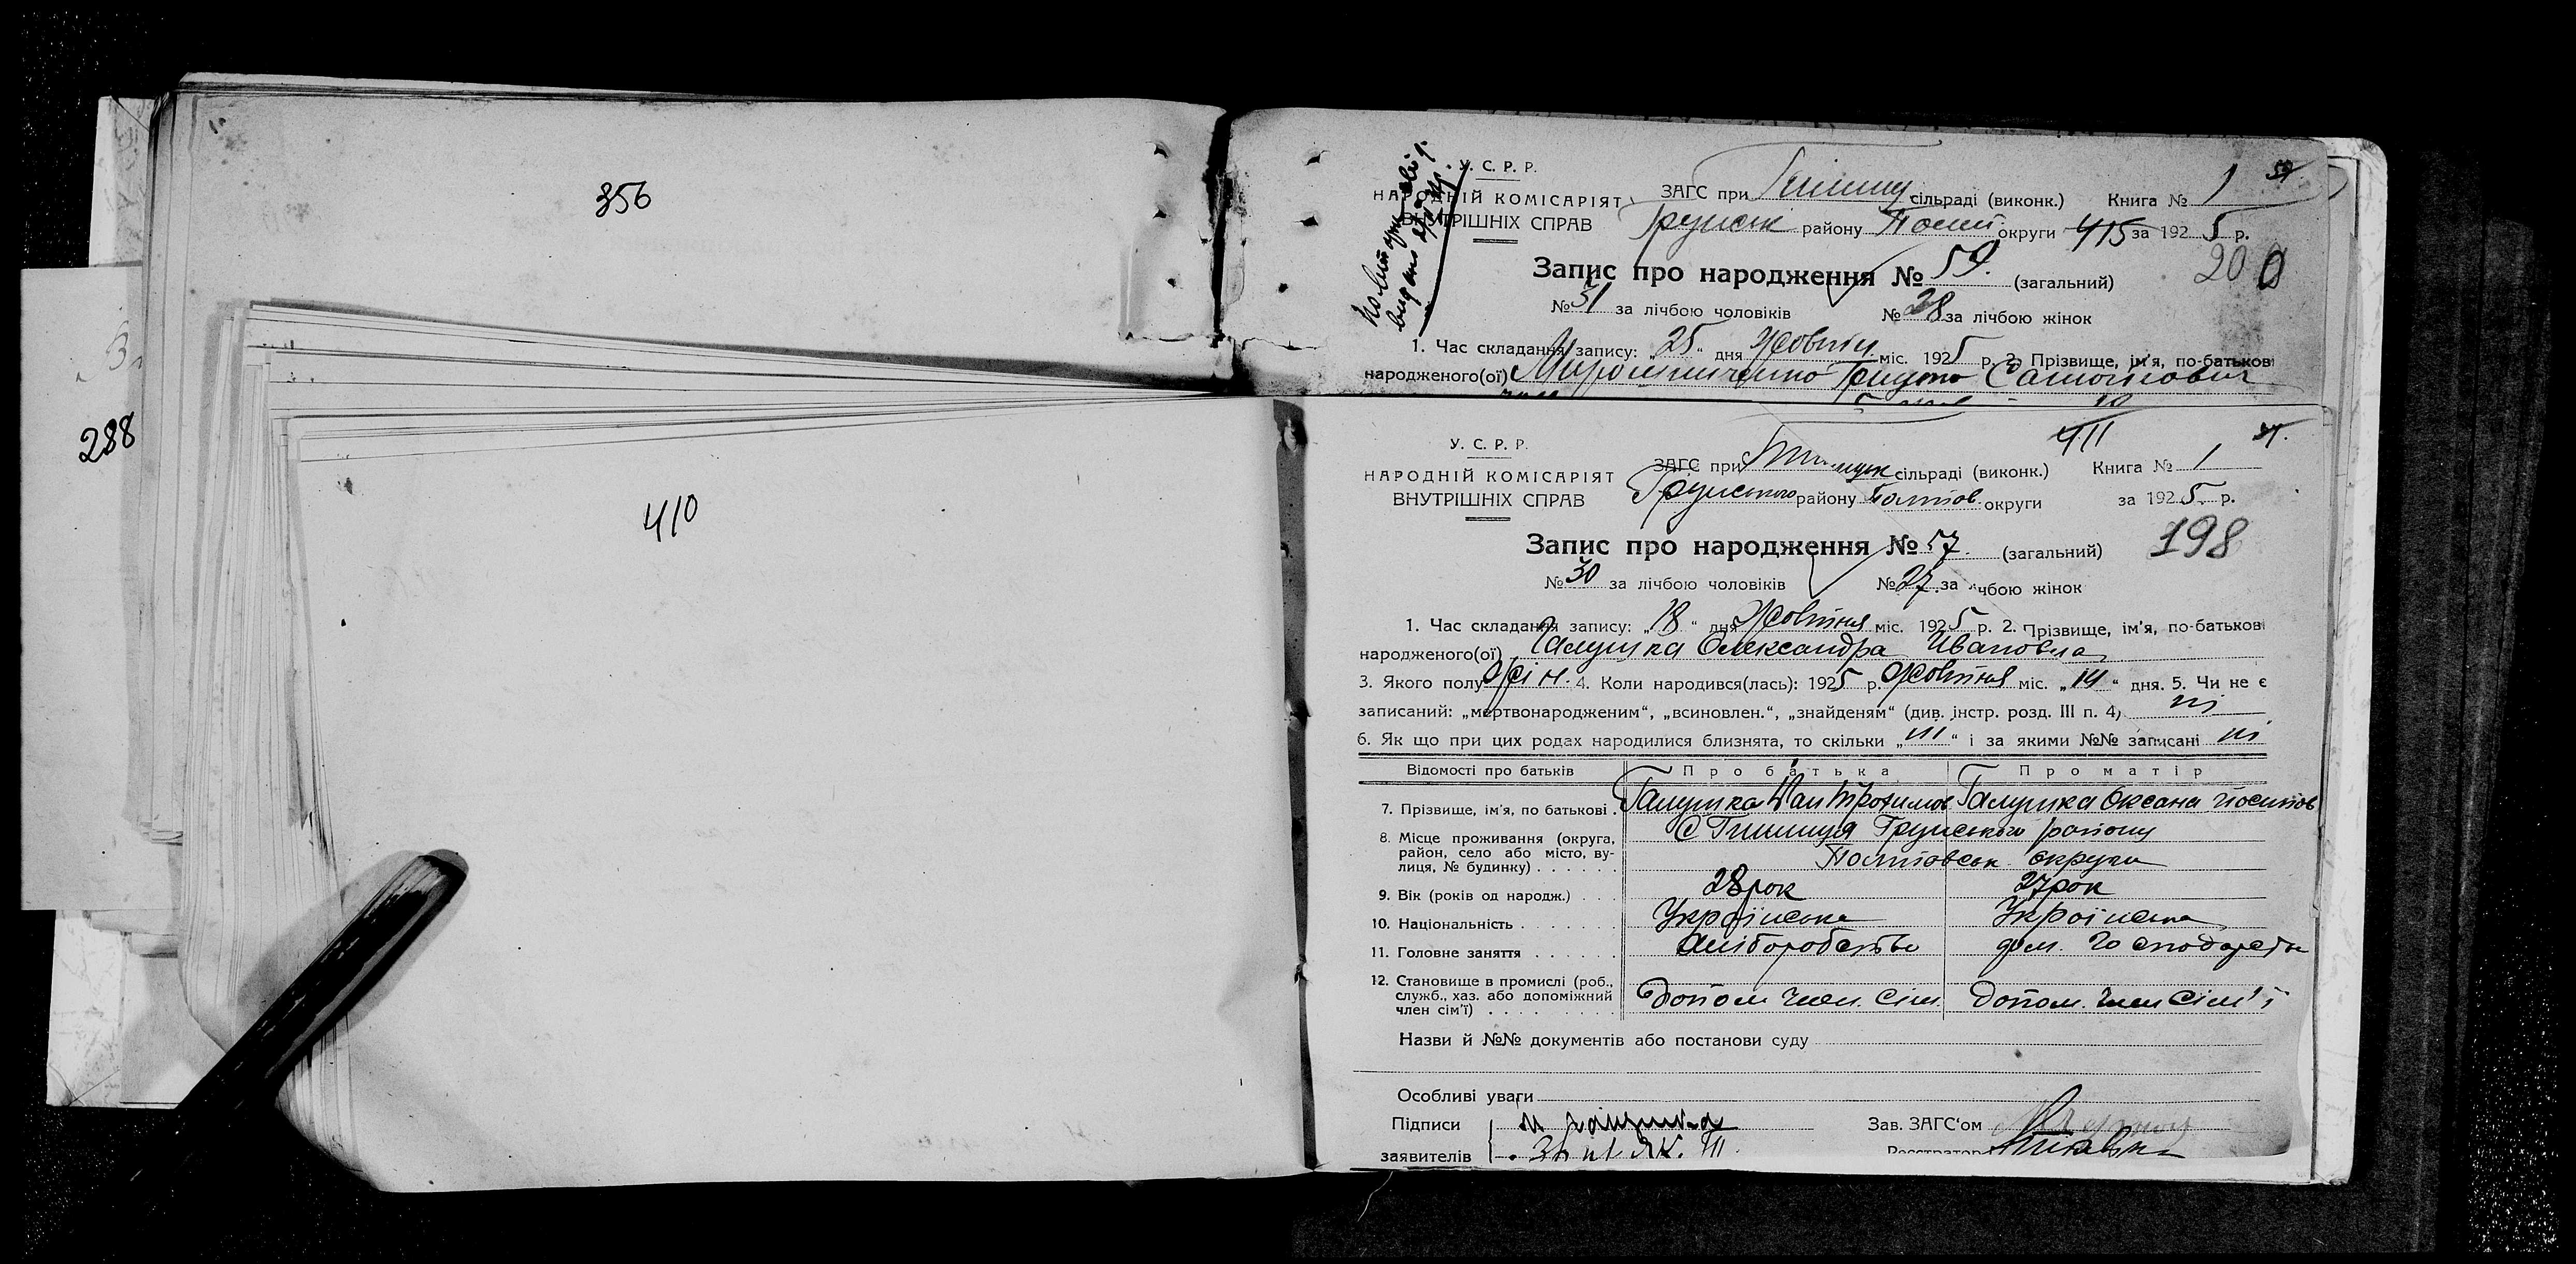 356
288
410
У. С. Р. Р.
НАРОДНІЙ КОМІСАРІЯТ
ВНУТРІШНІХ СПРАВ
ЗАГС при сільраді (виконк.) Книга № 1
Грунськ району Полт округи 415 за 1925 р.
200
Запис про народження № 59. (загальний)
№ 31 за лічбою чоловіків № 28 за лічбою жінок
1. Час складання запису: „25“ дня Жовтн міс. 1925 р. 2. Прізвище, ім’я, по-батькові
народженого(ої) Мирошниченко
411
У. С. Р. Р.
НАРОДНІЙ КОМІСАРІЯТ
ВНУТРІШНІХ СПРАВ
ЗАГС при сільраді (виконк.) Книга № 1
Грунського району Полтов округи за 1925 р.
198
Запис про народження № 57. (загальний)
№ 30 за лічбою чоловіків № 27. за лічбою жінок
1. Час складання запису: „18“ дня Жовтня міс. 1925 р. 2. Прізвище, ім’я, по-батькові
народженого(ої) Галушка Олександра Ивановна
3. Якого полу жін. 4. Коли народився(лась): 1925 р. Жовтня міс. „14“ дня. 5. Чи не є
записаний: „мертвонародженим“, „всиновлен.“, „знайденям“ (див. інстр. розд. III п. 4) ні
6. Як що при цих родах народилися близнята, то скільки „ні“ і за якими №№ записані ні
Відомості про батьків Про батька Про матір
7. Прізвище, ім’я, по батькові . Галушка Иван Трохимов Галушка Оксана Йосипов
8. Місце проживання (округа, район, село або місто, вулиця, № будинку) . . . . . . С Грунського району
Полтовськ округи
9. Вік (років од народж.) . . . 28 рок 27 рок
10. Національність . . . . . . . Українська Українська
11. Головне заняття . . . . . . хліборобство дом. господарств
12. Становище в промислі (роб., служб., хаз. або допоміжний член сім’ї) . . . . . . . . Допом член. сім. Допом. член сім'ї
Назви й №№ документів або постанови суду
Особливі уваги
Підписи
заявителів
Галушка
Зав. ЗАГС’ом
Реєстратор